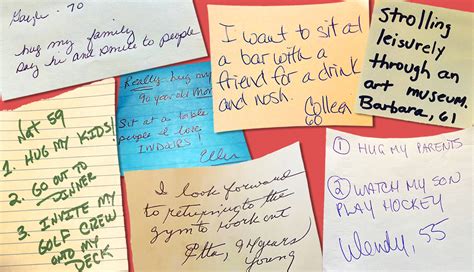 Gayle - 70
hug my family
Say hi and smile to people
Really - hug my
90 year old Mom
Sit at a table
people I love,
INDOORS!
Ellen
I want to sit at
a bar with a
friend for a drink
and nosh.
Colleen
60
Strolling
leisurely
through an
art museum,
Barbara, 61
Nat 59
1. HUG MY KIDS!
2. GO OUT TO
DINNER
3. INVITE MY
GOLF CREW
ONTO MY
DECK
I look forward
to returning to the
gym to work out
Etta, 94 years
young
① HUG MY PARENTS
② WATCH MY SON
PLAY HOCKEY
Wendy, 55